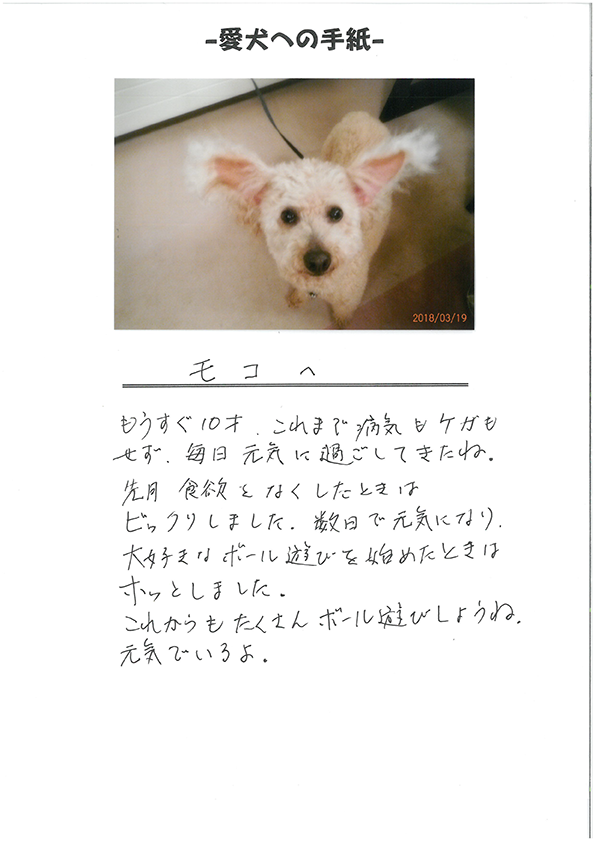 -愛犬への手紙-
2018/03/19
モコへ
もうすぐ10才、これまで病気もケガも
せず、毎日元気に過ごしてきたね。
先月食欲をなくしたときは
ビックリしました。数日で元気になり、
大好きなボール遊びを始めたときは
ホッとしました。
これからもたくさんボール遊びしようね。
元気でいろよ。